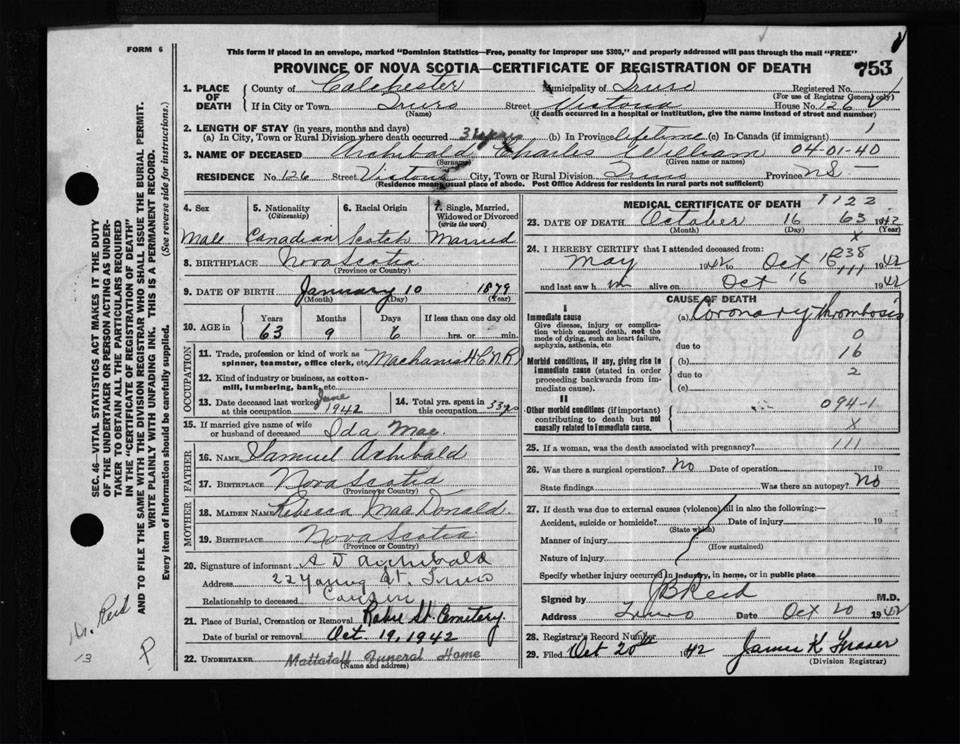 FORM 6
This form if placed in an envelope, marked "Dominion Statistics—Free, penalty for improper use $300," and properly addressed will pass through the mail "FREE"
PROVINCE OF NOVA SCOTIA—CERTIFICATE OF REGISTRATION OF DEATH 753
1. PLACE OF DEATH County of Colchester Municipality of Truro Registered No.
(For use of Registrar General only)
If in City or Town Truro Street Victoria House No. 126
(Name) (If death occurred in a hospital or institution, give the name instead of street and number)
2. LENGTH OF STAY (in years, months and days)
(a) In City, Town or Rural Division where death occurred years (b) In Province lifetime (c) In Canada (if immigrant) 1
3. NAME OF DECEASED Archibald Charles William 04-01-40
(Surname) (Given name or names)
RESIDENCE No. 126 Street Victoria City, Town or Rural Division Truro Province N.S.
(Residence means usual place of abode. Post Office Address for residents in rural parts not sufficient)
4. Sex 5. Nationality (Citizenship) 6. Racial Origin 7. Single, Married, Widowed or Divorced (write the word)
Male Canadian Scotch Married
8. BIRTHPLACE Nova Scotia
(Province or Country)
9. DATE OF BIRTH January 10 1879
(Month) (Day) (Year)
10. AGE in Years Months Days If less than one day old
63 9 6 hrs. or min.
OCCUPATION
11. Trade, profession or kind of work as spinner, teamster, office clerk, etc. Machanist C.N.R.
12. Kind of industry or business, as cotton-mill, lumbering, bank, etc.
13. Date deceased last worked at this occupation June 1942 14. Total yrs. spent in this occupation 33 yrs
15. If married give name of wife or husband of deceased Ida Mae.
FATHER
16. NAME Samuel Archibald
17. BIRTHPLACE Nova Scotia
(Province or Country)
MOTHER
18. MAIDEN NAME Rebecca MacDonald.
19. BIRTHPLACE Nova Scotia
(Province or Country)
20. Signature of informant A D Archibald
Address 22 Young St. Truro
Relationship to deceased Cousin
21. Place of Burial, Cremation or Removal Robie St. Cemetery.
Date of burial or removal Oct. 19, 1942
22. UNDERTAKER Mattatall Funeral Home
(Name and address)
MEDICAL CERTIFICATE OF DEATH 1122
23. DATE OF DEATH October 16 63 1942
(Month) (Day) (Year)
X
24. I HEREBY CERTIFY that I attended deceased from:
May 1942 to Oct 16 1942
238
111
and last saw h im alive on Oct 16 1942
CAUSE OF DEATH
I
Immediate cause (a) Coronary Thrombosis
Give disease, injury or complication which caused death, not the mode of dying, such as heart failure, asphyxia, asthenia, etc.
due to 0
Morbid conditions, if any, giving rise to immediate cause (stated in order proceeding backwards from immediate cause).
(b) 16
due to 2
(c)
II
Other morbid conditions (if important) contributing to death but not causally related to immediate cause.
094-1
X
25. If a woman, was the death associated with pregnancy? 111
26. Was there a surgical operation? No Date of operation 19
State findings Was there an autopsy? No
27. If death was due to external causes (violence) fill in also the following:—
Accident, suicide or homicide? Date of injury 19
(State which)
Manner of injury
(How sustained)
Nature of injury
Specify whether injury occurred in industry, in home, or in public place
Signed by J B Reid M.D.
Address Truro Date Oct 20 1942
28. Registrar's Record Number
29. Filed Oct 20th 1942 James K Fraser
(Division Registrar)
SEC. 46—VITAL STATISTICS ACT MAKES IT THE DUTY
OF THE UNDERTAKER OR PERSON ACTING AS UNDER-
TAKER TO OBTAIN ALL THE PARTICULARS REQUIRED
IN THE "CERTIFICATE OF REGISTRATION OF DEATH"
AND TO FILE THE SAME WITH THE DIVISION REGISTRAR WHO SHALL ISSUE THE BURIAL PERMIT.
WRITE PLAINLY WITH UNFADING INK. THIS IS A PERMANENT RECORD.
Every item of Information should be carefully supplied. (See reverse side for instructions.)
Dr. Reid
13
P